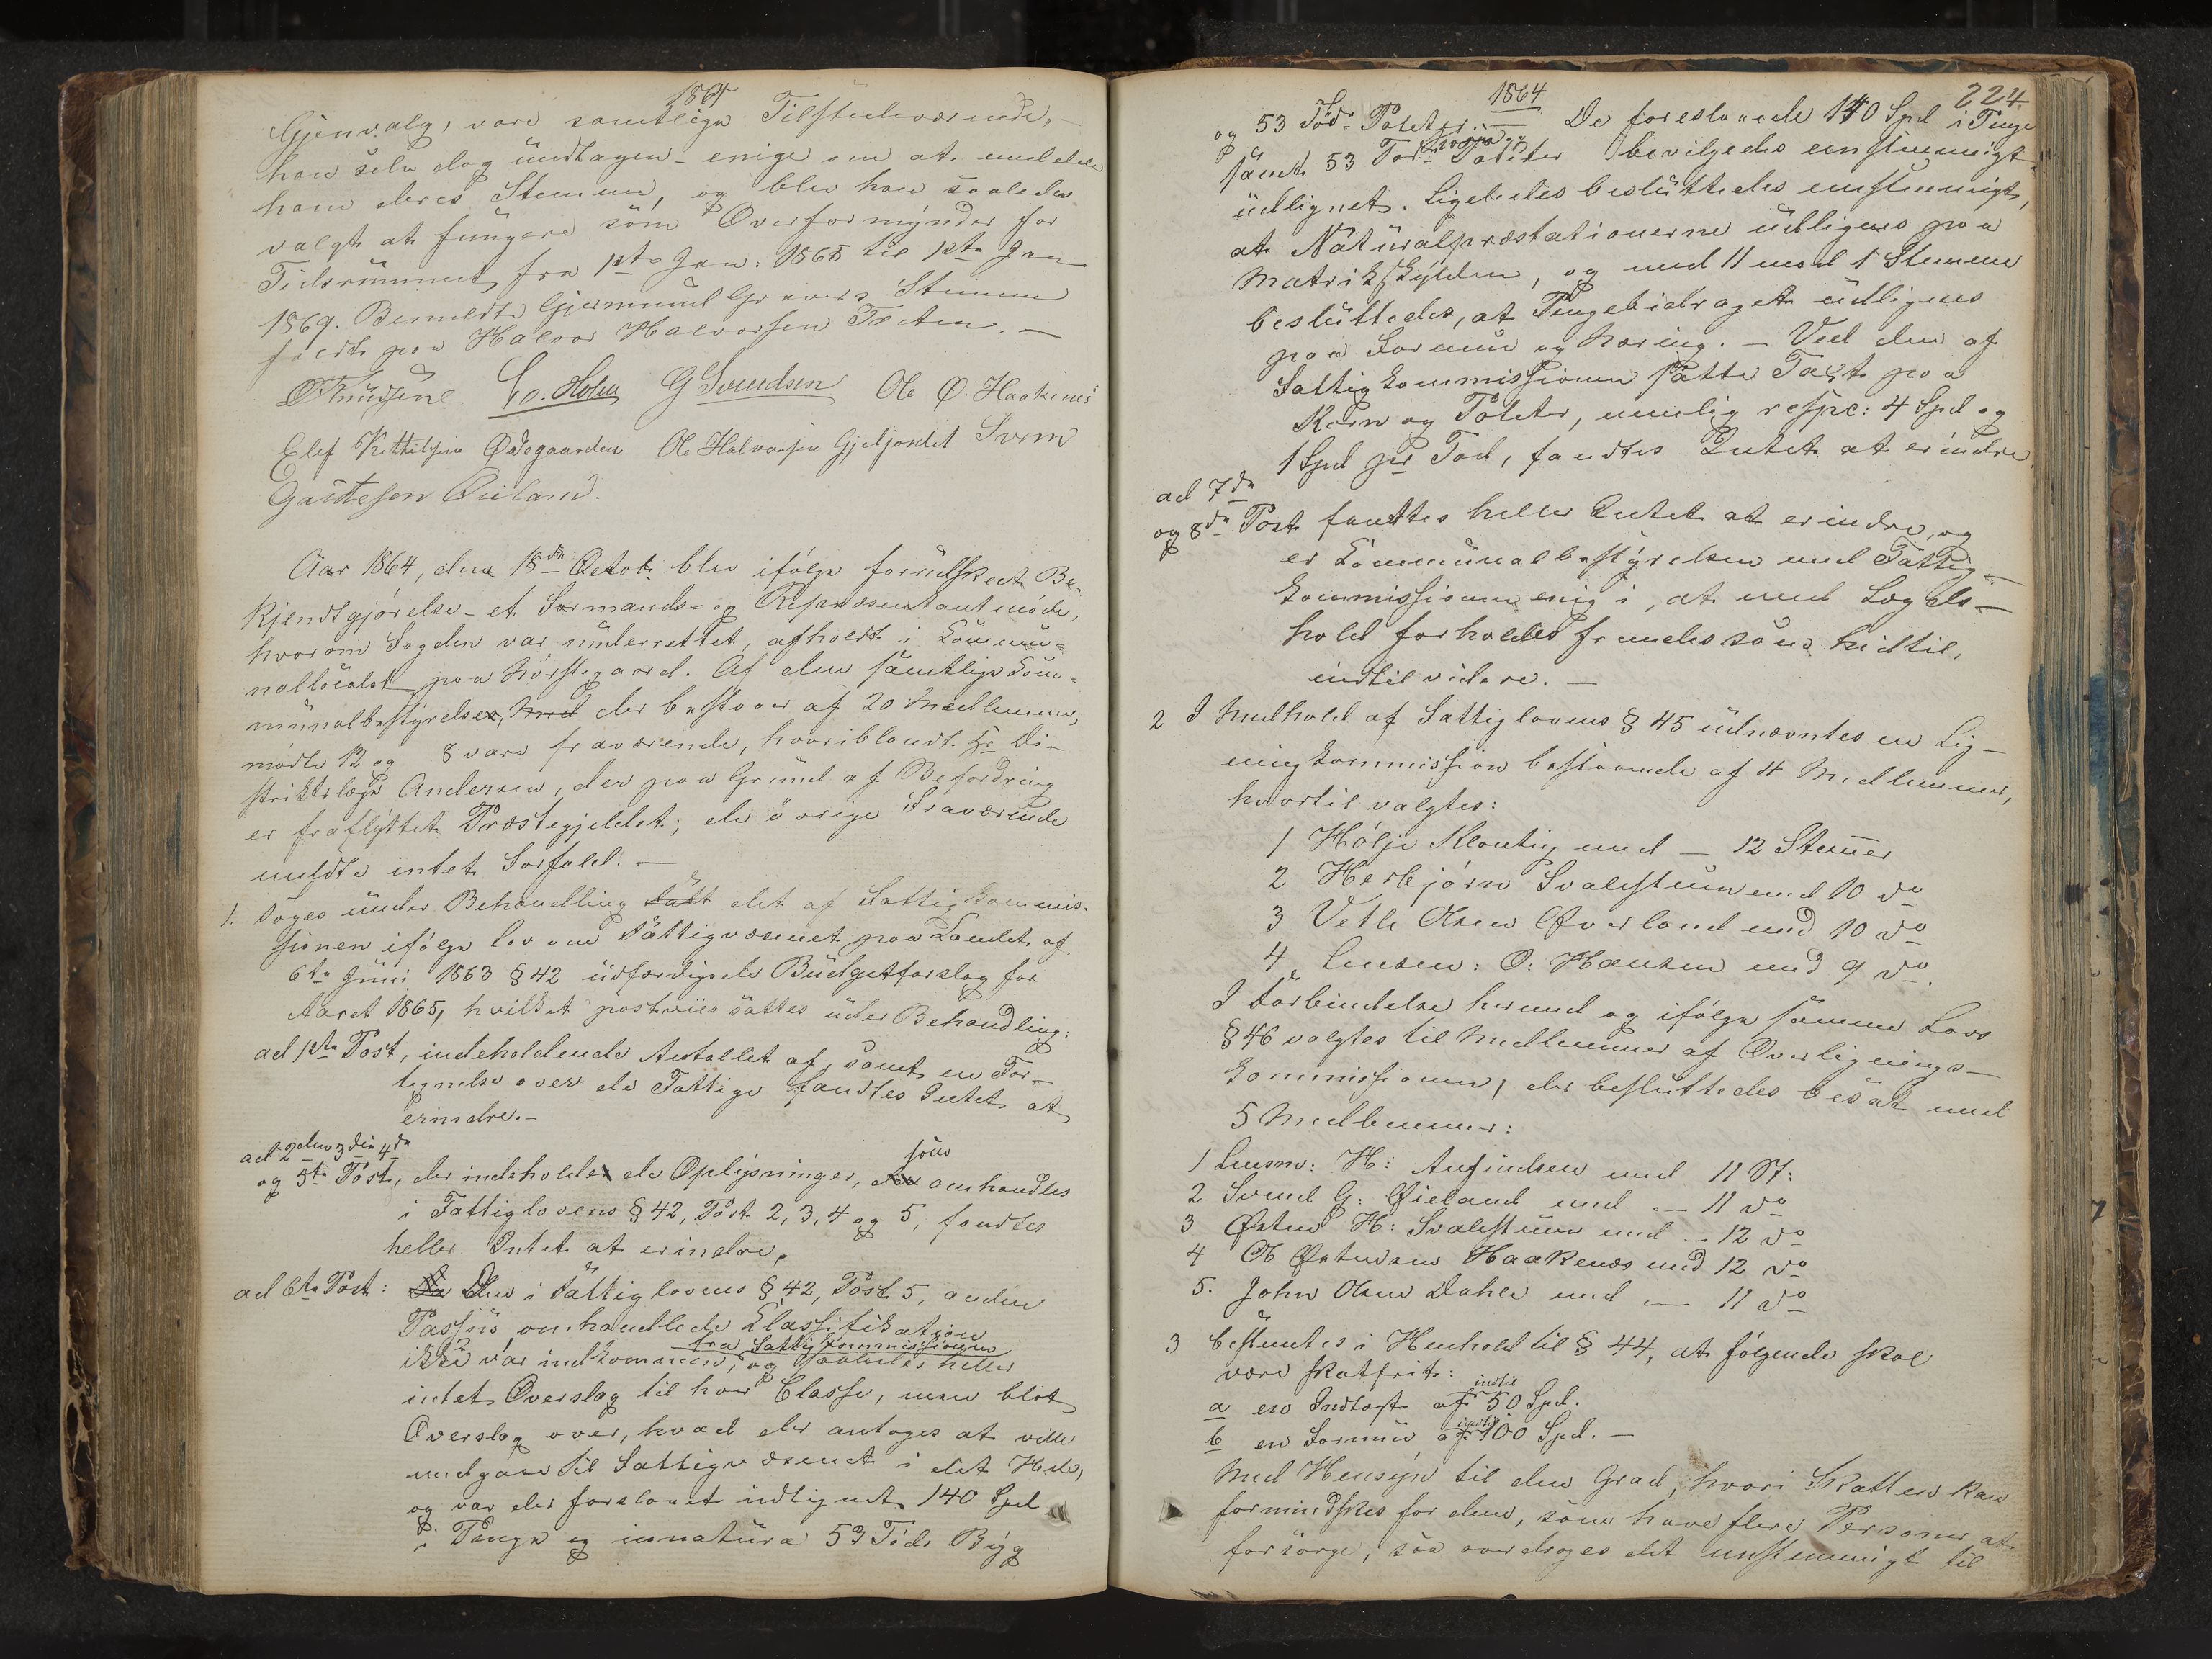 1864
Gjenvalg, vare samtlige Tilstedeværende, –
han selv dog undtagen – enige om at meddele
ham deres Stemme, og blev han saaledes
valgt at fungere som Overformynder for
Tidsrummet fra 1ste Jan: 1865 til 1ste Jan
1869. Bemeldte Gjermund Gravers Stemme
faldt paa Halvor Halvorsen Træten. –
OKnudsen Ev. Holm G Svendsen Ole Ø. Haakenes
Elef Kittilsen Ødegaarden Ole Halvorsen Gjeljordet Svend
Gauteson Øiland.
Aar 1864, den 18de Octob: blev ifølge forudskeet Be-
kjendtgjørelse – et Formands- og Repræsentantmøde,
hvorom Fogden var underrettet, afholdt i Commu-
nallocalet paa Norstegaard. Af den samtlige Com-
munalbestyrelse, med der bestaaer af 20 Medlemmer,
mødte 12 og 8 vare fraværende, hvoriblandt Hr Di-
striktslæge Andersen, der paa Grund af Befordring
er fraflyttet Præstegjeldet; de øvrige Fraværende
meldte intet Forfald. –
1. Toges under Behandling Fatt det af Fattigkommis-
sionen ifølge Lov om Fattigvæsenet paa Landet af
6te Juni 1863 § 42 udfærdigede Budgetforslag for
Aaret 1865, hvilket postviis sattes under Behandling:
ad 1ste Post, indeholdende Antallet af, samt en For-
tegnelse over de Fattige fandtes Intet at
erindre. –
ad 2den 3die 4de
og 5te Post, der indeholder de Oplysninger, der som omhandles
i Fattiglovens § 42, Post 2, 3, 4 og 5, fandtes
heller Intet at erindre.
ad 6te Post: Da Den i Fattiglovens § 42, Post 5, anden
Passus, omhandlede Classifikation
ikke var indkommen fra Fattigkommissionen, og saaledes heller
intet Overslag til hver Classe, men blot
Overslag over, hvad der antoges at ville
medgaae til Fattigvæsenet i det Hele,
og var der foreslaaet udlignet 140 Spd
i Penge og innatura 53 Tdr Byg
1864
224.
og 53 Tdr Poteter. – De foreslaaede 140 Spd i Penge
samt 53 Tdr Korn og Poteter bevilgedes eenstemmigt
udlignet. Ligeledes besluttedes eenstemmigt,
at Naturalpræstationerne udlignes paa
Matrikskylden, og med 11 mod 1 Stemme
besluttedes, at Pengebidraget udlignes
paa Formue og Næring. – Ved den af
Fattigkommissionen satte Taxt paa
Korn og Poteter, nemlig respc: 4 Spd og
1 Spd pr Tød, fandtes Intet at erindre.
ad 7de
og 8de Post fandtes heller Intet at erindre, og
er Communalbestyrelsen med Fattig-
kommissionen enig i, at med Lægds-
hold forholdes fremdeles som hidtil,
indtil videre. –
2 I Medhold af Fattiglovens § 45 udnævntes en Lig-
ningkommission bestaaende af 4 Medlemmer,
hvortil valgtes:
1 Hølje Klontig med – 12 Stemmer
2 Herbjørn Svalestuen med 10 do
3 Vetle Olsen Øverland med 10 do
4 Lensm: O: Hansen med 9 do.
I Forbindelse hermed og ifølge samme Lovs
§ 46 valgtes til Medlemmer af Overlignings-
kommissionen, der besluttedes besat med
5 Medlemmer:
1 Lensm: H: Aufindsen med 11 St:
2 Svend G. Øieland med – 11 do
3 Østen H: Svalestuen med – 12 do
4 Ole Østensen Haakenæs med 12 do
5. John Olsen Dahle med – 11 do
3 bestemtes i Henhold til § 44, at følgende skal
være skatfrit:
a en Indtægt af indtil 50 Spd.
b en Formue af indtil 100 Spd. –
Med Hensyn til den Grad, hvori Skatten kan
formindskes for dem, som have flere Personer at
forsørge, saa overdroges det eenstemmigt til